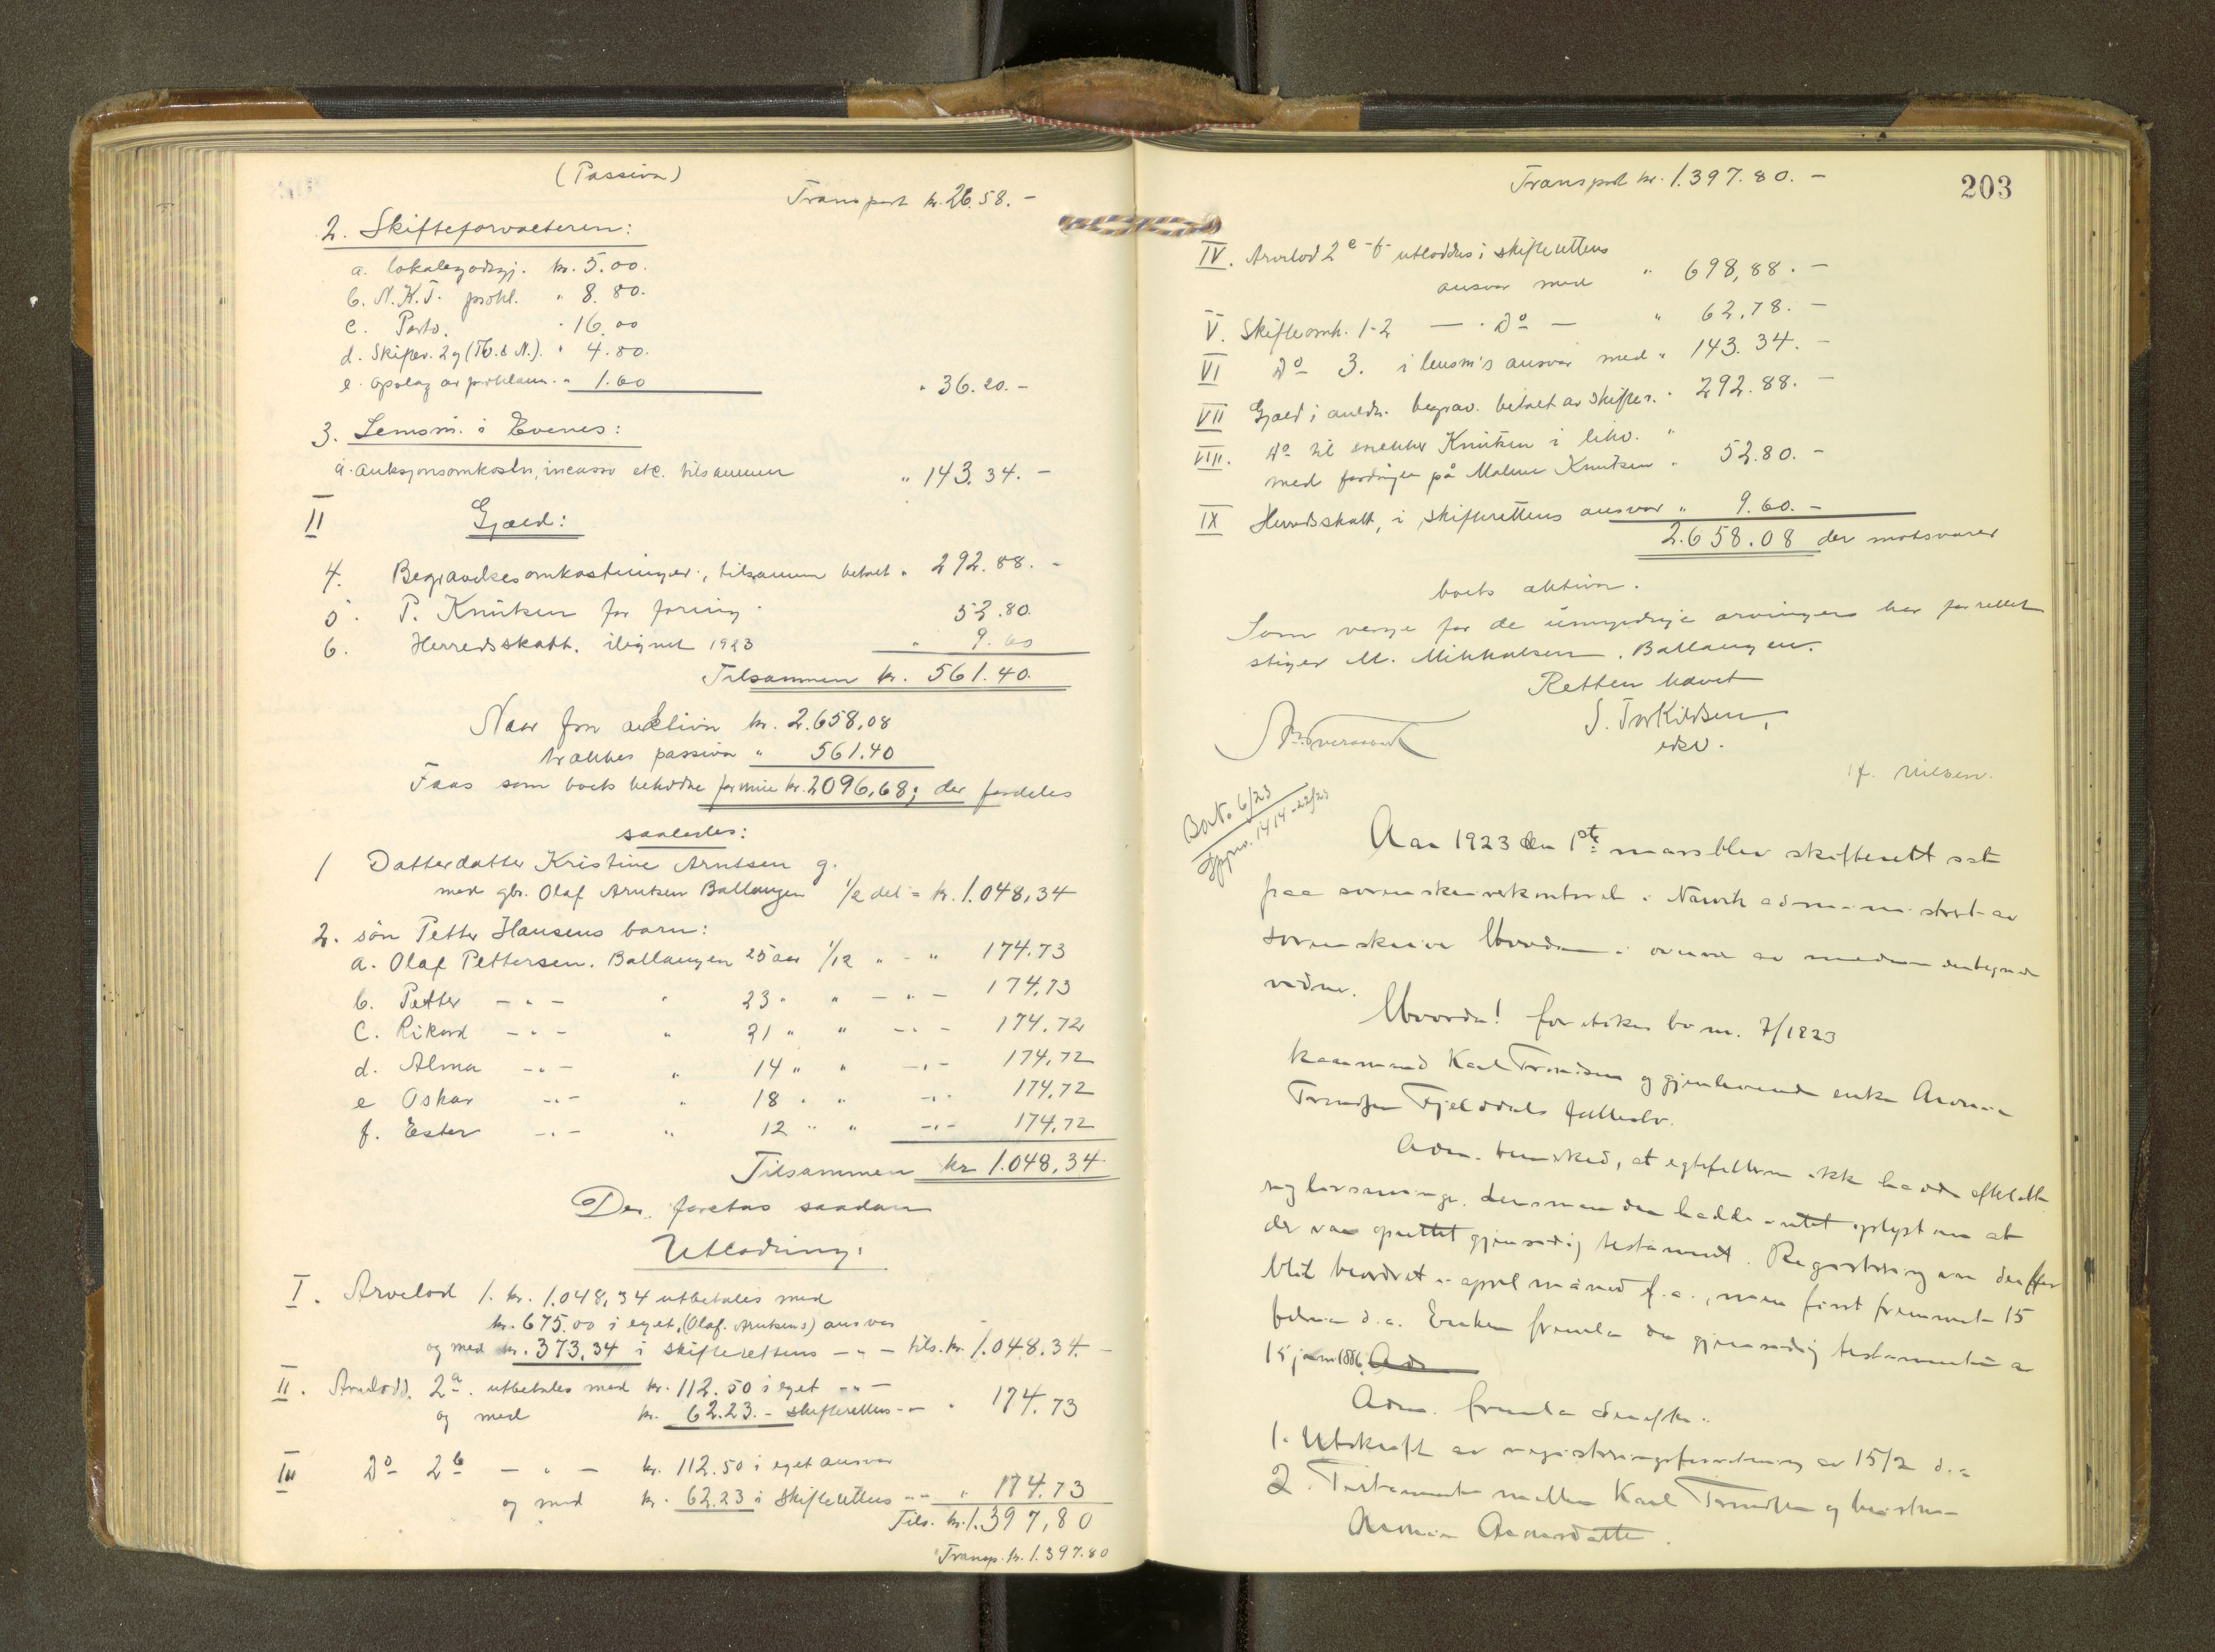 (Passiva)
Transport kr. 26.58. -
2. Skifteforvalteren:
a. lokalegodtgj. kr. 5.00.
b. N.K.T. prokl. " 8.80.
c. Porto. " 16.00
d. Skifter. 2 g (Tb. & N.). " 4.80.
e. Opslag av proklam. " 1.60
" 36.20. -
3. Lensm. i Evenes:
a. auksjonsomkostn, incasso etc. tilsammen " 143.34. -
II Gjæld:
4. Begravelsesomkostninger, tilsammen betalt " 292.88. -
5. P. Knutsen for foring 52.80.
6. Herredsskatt, ilignet 1923 " 9.60
Tilsammen kr. 561.40.
Naar fra aktiva kr. 2.658,08
trækkes passiva " 561.40
Faas som boets beholdne formue kr. 2096,68; der fordeles
saaledes:
1 Datterdatter Kristine Arntsen g.
med gbr. Olaf Arntsen Ballangen 1/2 del = kr. 1.048,34
2. søn Petter Hansens barn:
a. Olaf Pettersen. Ballangen 25 aar 1/12 " - " 174.73
b. Petter - " - " 23 " " - " - 174,73
C. Rikard - " - " 21 " " - " - 174.72
d. Alma - " - " 14 " " - " - 174,72
e Oskar - " - " 18 " " - " - 174,72
f. Ester - " - " 12 " " - " - 174,72
Tilsammen kr 1.048,34
Der foretas saadan
Utlodning:
I. Arvelod 1. kr. 1.048,34 utbetales med
kr. 675.00 i eget, (Olaf. Arntsens) ansvar
og med kr. 373,34 i skifterettens - " - tils. kr. 1.048.34. -
II. Arvelodd. 2a. utbetales med kr. 112.50 i eget - " -
og med kr. 62.23. - skifterettens - " - " 174.73
III Do 2b - " - kr. 112.50 i eget ansvar
og med kr. 62.23 i skifterettens - " - " 174.73
Tils. kr. 1.397,80
Transp. kr. 1.397.80
Transport kr. 1.397.80. -
203
IV. Arvelod 2 c - f utloddes i skifterettens
ansvar med " 698,88. -
V. Skifteomk. 1-2 — " Do — " 62.78. -
VI Do 3. i lensm's ansvar med " 143.34. -
VII Gjæld i anledn. begrav. betalt av skifter. " 292.88. -
VIII. Do til snekker Knutsen i likv. "
med fordringen på Malene Knutsen " 52.80. -
IX Herredsskatt, i skifterettens ansvar " 9.60. -
2.658.08 der motsvarer
boets aktiva.
Som verge for de umyndige arvinger har forrettet
stiger M. Mikkalsen. Ballangen.
Retten hævet
S. Torkildsen,
edsv.
H. Nielsen.
Bo nr. 6/23
Aar 1923 den 1ste mars blev skifterett sat
paa sorenskriverkontoret i Narvik administrert av
sorenskriver i overvær av nedenundertegnede
vidner.
foretokes bo nr. 7/1923
Karl Trondsen og gjenlevende enke
Trondsen Fjelddals fællesbo.
Adm. bemerked, at egtefellerne ikke hadde efterlatt
sig livsarvinger. Lensmannen hadde intet oplyst om at
der var oprettet gjensidig testament. Registrering var derfor
blit beordret i april måned f.a., men først fremmet 15
februar d.a. Enken fremla da gjensidig testament av
15 1886. Adm
Adm. fremla derefter:
1. Utskrift av registreringsforretning av 15/2 d.a
2. Testamente mellem Karl Trondsen og hustru